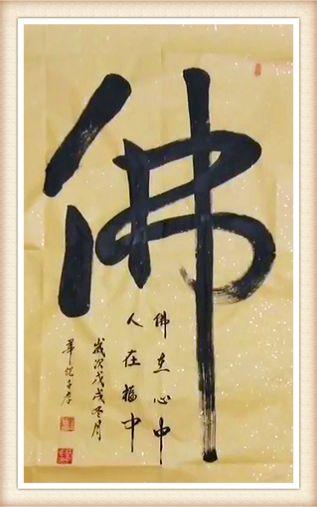 佛
佛在心中
人在福中
歲次戊戌冬月